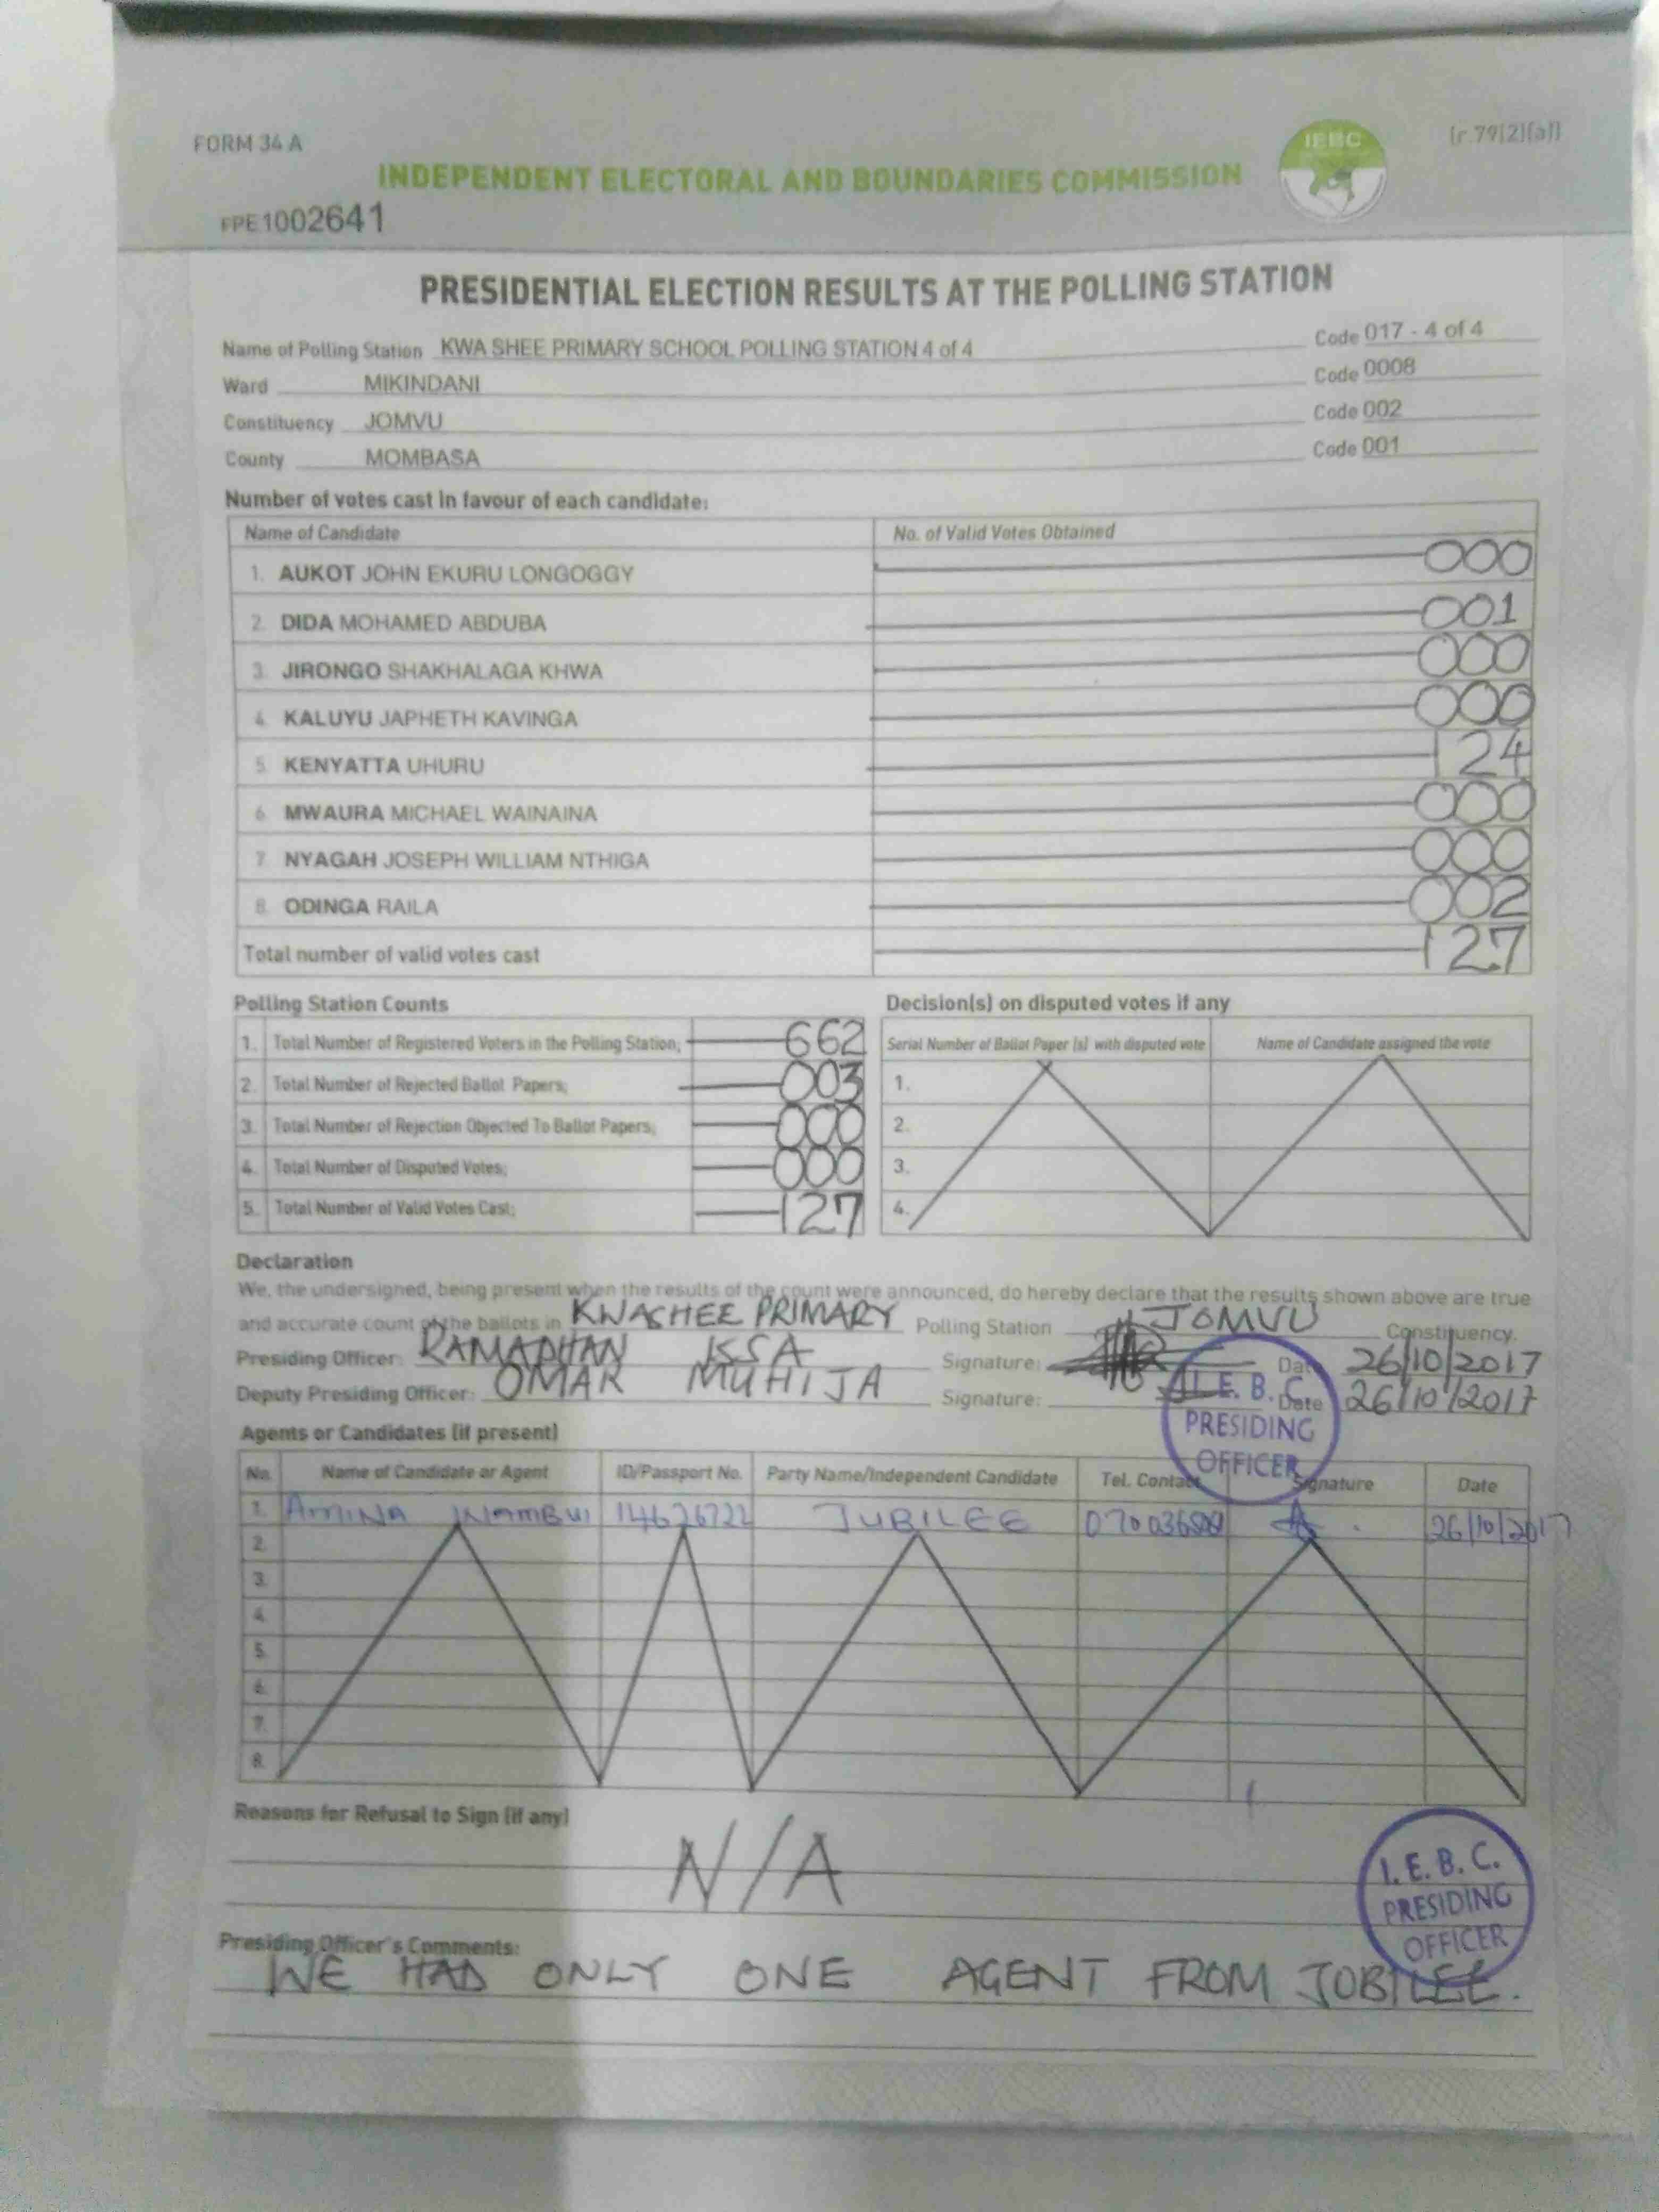 FORM 34 A
IEBC
(r.79(2)(a))
INDEPENDENT ELECTORAL AND BOUNDARIES COMMISSION
FPE1002641
PRESIDENTIAL ELECTION RESULTS AT THE POLLING STATION
Name of Polling Station KWA SHEE PRIMARY SCHOOL POLLING STATION 4 of 4 Code 017 - 4 of 4
Ward MIKINDANI Code 0008
Constituency JOMVU Code 002
County MOMBASA Code 001
Number of votes cast in favour of each candidate:
Name of Candidate No. of Valid Votes Obtained
1. AUKOT JOHN EKURU LONGOGGY 000
2. DIDA MOHAMED ABDUBA 001
3. JIRONGO SHAKHALAGA KHWA 000
4. KALUYU JAPHETH KAVINGA 000
5. KENYATTA UHURU 124
6. MWAURA MICHAEL WAINAINA 000
7. NYAGAH JOSEPH WILLIAM NTHIGA 000
8. ODINGA RAILA 002
Total number of valid votes cast 127
Polling Station Counts
1. Total Number of Registered Voters in the Polling Station; 662
2. Total Number of Rejected Ballot Papers; 003
3. Total Number of Rejection Objected To Ballot Papers; 000
4. Total Number of Disputed Votes; 000
5. Total Number of Valid Votes Cast; 127
Decision(s) on disputed votes if any
Serial Number of Ballot Paper (s) with disputed vote Name of Candidate assigned the vote
1.
2.
3.
4.
Declaration
We, the undersigned, being present when the results of the count were announced, do hereby declare that the results shown above are true
and accurate count of the ballots in KWASHEE PRIMARY Polling Station JOMVU Constituency.
Presiding Officer: RAMADHAN ISSA Signature: Date 26/10/2017
Deputy Presiding Officer: OMAR MUHIJA Signature: Date 26/10/2017
I.E.B.C.
PRESIDING
OFFICER
Agents or Candidates (if present)
No. Name of Candidate or Agent ID/Passport No. Party Name/Independent Candidate Tel. Contact Signature Date
1. AMINA 14626722 JUBILEE 26/10/2017
2.
3.
4.
5.
6.
7.
8.
Reasons for Refusal to Sign (if any)
N/A
I.E.B.C.
PRESIDING
OFFICER
Presiding Officer's Comments:
WE HAD ONLY ONE AGENT FROM JOBILEE.